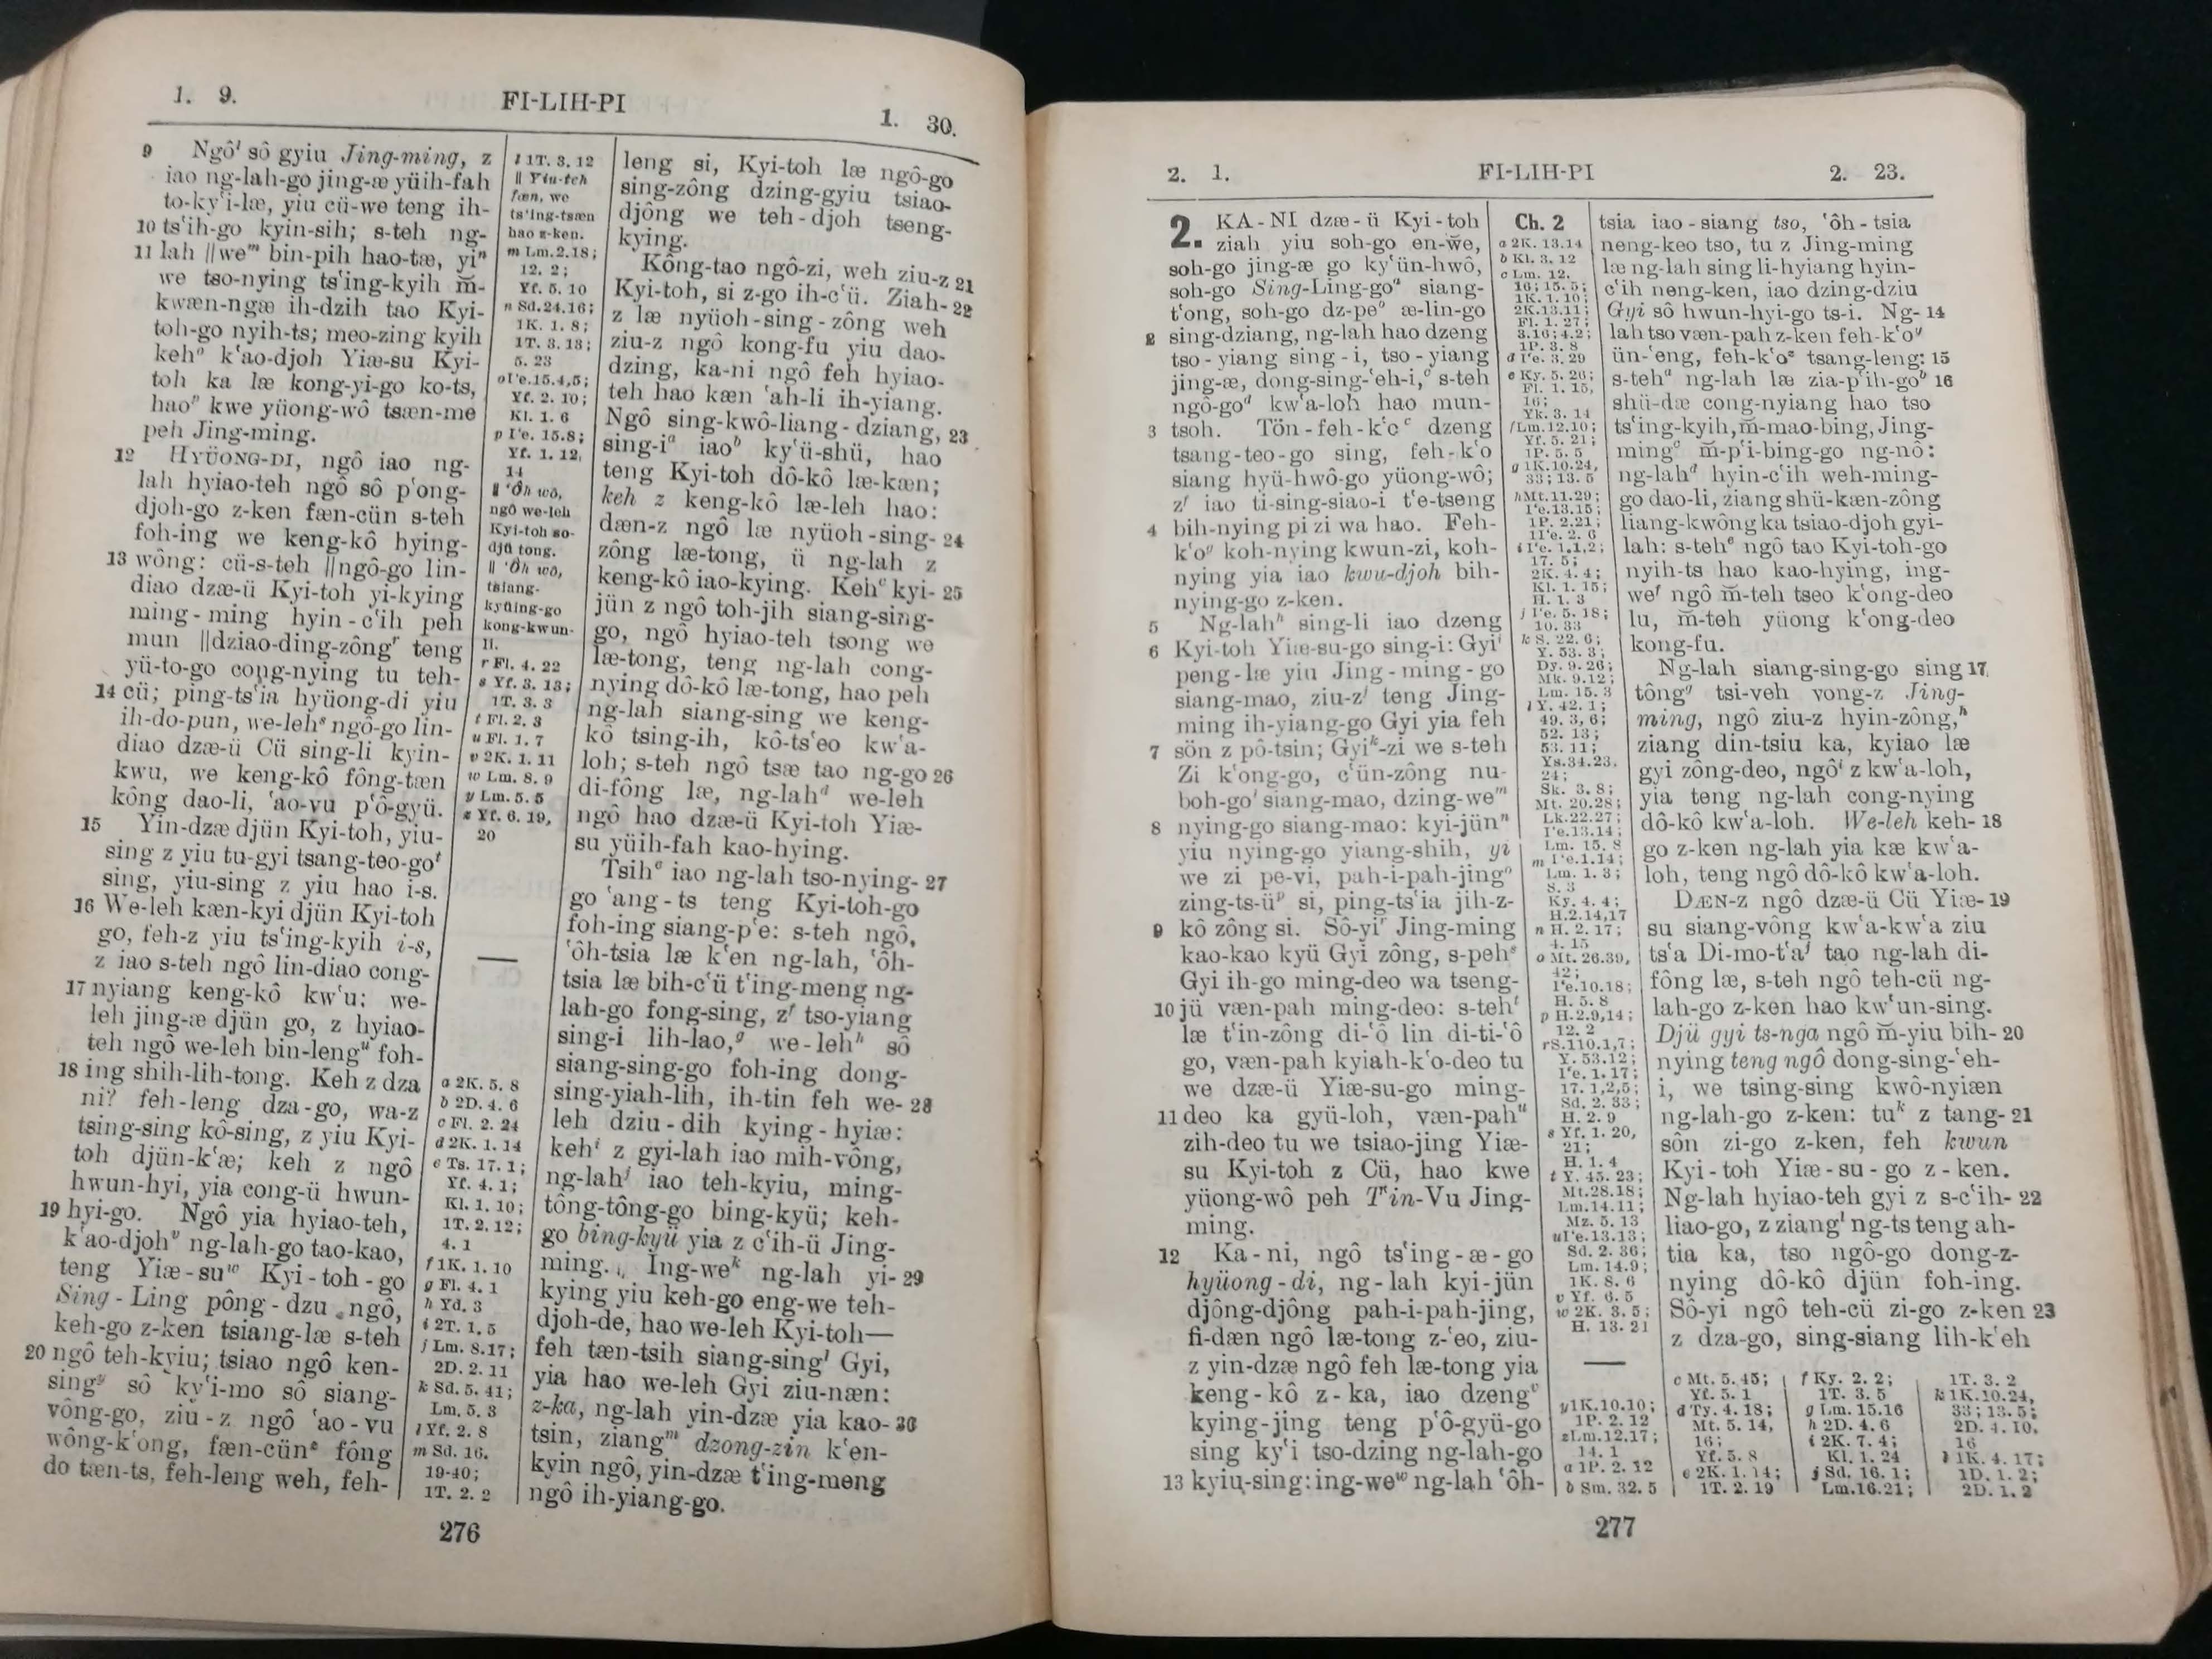 1. 9.
FI-LIH-PI
1. 30.
9 Ngôˡ sô gyiu Jing-ming, z
iao ng-lah-go jing-æ yüih-fah
to-ky‘i-læ, yiu cü-we teng ih-
10 ts‘ih-go kyin-sih; s-teh ng-
11 lah ||weᵐ bin-pih hao-tæ, yiⁿ
we tso-nying ts‘ing-kyih m̆-
kwæn-ngæ ih-dzih tao Kyi-
toh-go nyih-ts; meo-zing kyih
kehᵒ k‘ao-djoh Yiæ-su Kyi-
toh ka læ kong-yi-go ko-ts,
haoᵖ kwe yüong-wô tsæn-me
peh Jing-ming.
12 HYÜONG-DI, ngô iao ng-
lah hyiao-teh ngô sô p‘ong-
djoh-go z-ken fæn-cün s-teh
foh-ing we keng-kô hying-
13 wông: cü-s-teh ||ngô-go lin-
diao dzæ-ü Kyi-toh yi-kying
ming-ming hyin-c‘ih peh
mun ||dziao-ding-zôngʳ teng
yü-to-go cong-nying tu teh-
14 cü; ping-ts‘ia hyüong-di yiu
ih-do-pun, we-lehˢ ngô-go lin-
diao dzæ-ü Cü sing-li kyin-
kwu, we keng-kô fông-tæn
kông dao-li, ‘ao-vu p‘ô-gyü.
15 Yin-dzæ djün Kyi-toh, yiu-
sing z yiu tu-gyi tsang-teo-goᵗ
sing, yiu-sing z yiu hao i-s.
16 We-leh kæn-kyi djün Kyi-toh
go, feh-z yiu ts‘ing-kyih i-s,
z iao s-teh ngô lin-diao cong-
17 nyiang keng-kô kw‘u; we-
leh jing-æ djün go, z hyiao-
teh ngô we-leh bin-lengᵘ foh-
18 ing shih-lih-tong. Keh z dza
ni? feh-leng dza-go, wa-z
tsing-sing kô-sing, z yiu Kyi-
toh djün-k‘æ; keh z ngô
hwun-hyi, yia cong-ü hwun-
19 hyi-go. Ngô yia hyiao-teh,
k‘ao-djohᵛ ng-lah-go tao-kao,
teng Yiæ-suʷ Kyi-toh-go
Sing-Ling pông-dzu ngô,
keh-go z-ken tsiang-læ s-teh
20 ngô teh-kyiu; tsiao ngô ken-
singʸ sô ky‘i-mo sô siang-
vông-go, ziu-z ngô ‘ao-vu
wông-k‘ong, fæn-cünᶻ fông
do tæn-ts, feh-leng weh, feh-
l 1T. 3. 12
|| Yiu-teh
fæn, we
ts‘ing-tsæn
hao z-ken.
m Lm.2.18;
12. 2;
Yf. 5. 10
n Sd.24.16;
1K. 1. 8;
1T. 3. 13;
5. 23
o I‘e.15.4,5;
Yf. 2. 10;
Kl. 1. 6
p I‘e. 15.8;
Yf. 1. 12,
14
|| ‘Ôh wô,
ngô we-leh
Kyi-toh so-
djü tong.
|| ‘Ôh wô,
tsiang-
kyüing-go
kong-kwun-
li.
r Fl. 4. 22
s Yf. 3. 13;
1T. 3. 3
t Fl. 2. 3
u Fl. 1. 7
v 2K. 1. 11
w Lm. 8. 9
y Lm. 5. 5
z Yf. 6. 19,
20
a 2K. 5. 8
b 2D. 4. 6
c Fl. 2. 24
d 2K. 1. 14
e Ts. 17. 1;
Yf. 4. 1;
Kl. 1. 10;
1T. 2. 12;
4. 1
f 1K. 1. 10
g Fl. 4. 1
h Yd. 3
i 2T. 1. 5
j Lm. 8.17;
2D. 2. 11
k Sd. 5. 41;
Lm. 5. 3
l Yf. 2. 8
m Sd. 16.
19-40;
1T. 2. 2
leng si, Kyi-toh læ ngô-go
sing-zông dzing-gyiu tsiao-
djông we teh-djoh tseng-
kying.
Kông-tao ngô-zi, weh ziu-z 21
Kyi-toh, si z-go ih-c‘ü. Ziah- 22
z læ nyüoh-sing-zông weh
ziu-z ngô kong-fu yiu dao-
dzing, ka-ni ngô feh hyiao-
teh hao kæn ‘ah-li ih-yiang.
Ngô sing-kwô-liang-dziang, 23
sing-iᵃ iaoᵇ ky‘ü-shü, hao
teng Kyi-toh dô-kô læ-kæn;
keh z keng-kô læ-leh hao:
dæn-z ngô læ nyüoh-sing- 24
zông læ-tong, ü ng-lah z
keng-kô iao-kying. Kehᶜ kyi- 25
jün z ngô toh-jih siang-sing-
go, ngô hyiao-teh tsong we
læ-tong, teng ng-lah cong-
nying dô-kô læ-tong, hao peh
ng-lah siang-sing we keng-
kô tsing-ih, kô-ts‘eo kw‘a-
loh; s-teh ngô tsæ tao ng-go 26
di-fông læ, ng-lahᵈ we-leh
ngô hao dzæ-ü Kyi-toh Yiæ-
su yüih-fah kao-hying.
Tsihᵉ iao ng-lah tso-nying- 27
go ‘ang-ts teng Kyi-toh-go
foh-ing siang-p‘e: s-teh ngô,
‘ôh-tsia læ k‘en ng-lah, ‘ôh-
tsia læ bih-c‘ü t‘ing-meng ng-
lah-go fong-sing, zᶠ tso-yiang
sing-i lih-lao,ᵍ we-lehʰ sô
siang-sing-go foh-ing dong-
sing-yiah-lih, ih-tin feh we- 28
leh dziu-dih kying-hyiæ:
kehⁱ z gyi-lah iao mih-vông,
ng-lahʲ iao teh-kyiu, ming-
tông-tông-go bing-kyü; keh-
go bing-kyü yia z c‘ih-ü Jing-
ming. Ing-weᵏ ng-lah yi- 29
kying yiu keh-go eng-we teh-
djoh-de, hao we-leh Kyi-toh—
feh tæn-tsih siang-singˡ Gyi,
yia hao we-leh Gyi ziu-næn:
z-ka, ng-lah yin-dzæ yia kao- 30
tsin, ziangᵐ dzong-zin k‘en-
kyin ngô, yin-dzæ t‘ing-meng
ngô ih-yiang-go.
276
2. 1.
FI-LIH-PI
2. 23.
2. KA-NI dzæ-ü Kyi-toh
ziah yiu soh-go en-w̆e,
soh-go jing-æ go ky‘ün-hwô,
soh-go Sing-Ling-goᵃ siang-
t‘ong, soh-go dz-peᵒ æ-lin-go
2 sing-dziang, ng-lah hao dzeng
tso-yiang sing-i, tso-yiang
jing-æ, dong-sing-‘eh-i,ᶜ s-teh
ngô-goᵈ kw‘a-loh hao mun-
3 tsoh. Tön-feh-k‘oᵉ dzeng
tsang-teo-go sing, feh-k‘o
siang hyü-hwô-go yüong-wô;
zᶠ iao ti-sing-siao-i t‘e-tseng
4 bih-nying pi zi wa hao. Feh-
k‘oᵍ koh-nying kwun-zi, koh-
nying yia iao kwu-djoh bih-
nying-go z-ken.
5 Ng-lahʰ sing-li iao dzeng
6 Kyi-toh Yiæ-su-go sing-i: Gyiⁱ
peng-læ yiu Jing-ming-go
siang-mao, ziu-zʲ teng Jing-
ming ih-yiang-go Gyi yia feh
7 sön z pô-tsin; Gyiᵏ-zi we s-teh
Zi k‘ong-go, c‘ün-zông nu-
boh-goˡ siang-mao, dzing-weᵐ
8 nying-go siang-mao: kyi-jünⁿ
yiu nying-go yiang-shih, yi
we zi pe-vi, pah-i-pah-jingᵒ
zing-ts-üᵖ si, ping-ts‘ia jih-z-
9 kô zông si. Sô-yiʳ Jing-ming
kao-kao kyü Gyi zông, s-pehˢ
Gyi ih-go ming-deo wa tseng-
10 jü væn-pah ming-deo: s-tehᵗ
læ t‘in-zông di-‘ô lin di-ti-‘ô
go, væn-pah kyiah-k‘o-deo tu
we dzæ-ü Yiæ-su-go ming-
11 deo ka gyü-loh, væn-pahᵘ
zih-deo tu we tsiao-jing Yiæ-
su Kyi-toh z Cü, hao kwe
yüong-wô peh T‘in-Vu Jing-
ming.
12 Ka-ni, ngô ts‘ing-æ-go
hyüong-di, ng-lah kyi-jün
djông-djông pah-i-pah-jing,
fi-dæn ngô læ-tong z-‘eo, ziu-
z yin-dzæ ngô feh læ-tong yia
keng-kô z-ka, iao dzengᵛ
kying-jing teng p‘ô-gyü-go
sing ky‘i tso-dzing ng-lah-go
13 kyiu-sing: ing-weʷ ng-lah ‘ôh-
Ch. 2
a 2K. 13.14
b Kl. 3. 12
c Lm. 12.
16; 15. 5;
1K. 1. 10;
2K.13.11;
Fl. 1. 27;
3.16; 4.2;
1P. 3. 8
d I‘e. 3. 29
e Ky. 5. 26;
Fl. 1. 15,
16;
Yk. 3. 14
f Lm.12.10;
Yf. 5. 21;
1P. 5. 5
g 1K.10.24,
33; 13. 5
h Mt.11.29;
I‘e.13.15;
1P. 2.21;
1I‘e. 2. 6
i I‘e. 1.1,2;
17. 5;
2K. 4. 4;
Kl. 1. 15;
H. 1. 3
j I‘e. 5. 18;
10. 33
k S. 22. 6;
Y. 53. 3;
Dy. 9. 26;
Mk. 9.12;
Lm. 15. 3
l Y. 42. 1;
49. 3, 6;
52. 13;
53. 11;
Ys.34.23,
24;
Sk. 3. 8;
Mt. 20.28;
Lk.22.27;
I‘e.13.14;
Lm. 15. 8
m I‘e.1.14;
Lm. 1. 3;
8. 3
Ky. 4. 4;
H.2.14,17
n H. 2. 17;
4. 15
o Mt. 26.39,
42;
I‘e.10.18;
H. 5. 8
p H.2.9,14;
12. 2
r S.110.1,7;
Y. 53.12;
I‘e. 1. 17;
17. 1,2,5;
Sd. 2. 33;
H. 2. 9
s Yf. 1. 20,
21;
H. 1. 4
t Y. 45. 23;
Mt.28.18;
Lm.14.11;
Mz. 5. 13
u I‘e.13.13;
Sd. 2. 36;
Lm. 14.9;
1K. 8. 6
v Yf. 6. 5
w 2K. 3. 5;
H. 13. 21
y 1K.10.10;
1P. 2. 12
z Lm.12.17;
14. 1
a 1P. 2. 12
b Sm. 32. 5
tsia iao-siang tso, ‘ôh-tsia
neng-keo tso, tu z Jing-ming
læ ng-lah sing li-hyiang hyin-
c‘ih neng-ken, iao dzing-dziu
Gyi sô hwun-hyi-go ts-i. Ng- 14
lah tso væn-pah z-ken feh-k‘oʸ
ün-‘eng, feh-k‘oᶻ tsang-leng: 15
s-tehᵃ ng-lah læ zia-p‘ih-goᵇ 16
shü-dæ cong-nyiang hao tso
ts‘ing-kyih, m̆-mao-bing, Jing-
mingᶜ m̆-p‘i-bing-go ng-nô:
ng-lahᵈ hyin-c‘ih weh-ming-
go dao-li, ziang shü-kæn-zông
liang-kwông ka tsiao-djoh gyi-
lah: s-tehᵉ ngô tao Kyi-toh-go
nyih-ts hao kao-hying, ing-
weᶠ ngô m̆-teh tseo k‘ong-deo
lu, m̆-teh yüong k‘ong-deo
kong-fu.
Ng-lah siang-sing-go sing 17
tôngᵍ tsi-veh vong-z Jing-
ming, ngô ziu-z hyin-zông,ʰ
ziang din-tsiu ka, kyiao læ
gyi zông-deo, ngôⁱ z kw‘a-loh,
yia teng ng-lah cong-nying
dô-kô kw‘a-loh. We-leh keh- 18
go z-ken ng-lah yia kæ kw‘a-
loh, teng ngô dô-kô kw‘a-loh.
DÆN-Z ngô dzæ-ü Cü Yiæ- 19
su siang-vông kw‘a-kw‘a ziu
ts‘a Di-mo-t‘aʲ tao ng-lah di-
fông læ, s-teh ngô teh-cü ng-
lah-go z-ken hao kw‘un-sing.
Djü gyi ts-nga ngô m̆-yiu bih- 20
nying teng ngô dong-sing-‘eh-
i, we tsing-sing kwô-nyiæn
ng-lah-go z-ken: tuᵏ z tang- 21
sön zi-go z-ken, feh kwun
Kyi-toh Yiæ-su-go z-ken.
Ng-lah hyiao-teh gyi z s-c‘ih- 22
liao-go, z ziangˡ ng-ts teng ah-
tia ka, tso ngô-go dong-z-
nying dô-kô djün foh-ing.
Sô-yi ngô teh-cü zi-go z-ken 23
z dza-go, sing-siang lih-k‘eh
c Mt. 5. 45;
Yf. 5. 1
d Ty. 4. 18;
Mt. 5. 14,
16;
Yf. 5. 8
e 2K. 1. 14;
1T. 2. 19
f Ky. 2. 2;
1T. 3. 5
g Lm. 15.16
h 2D. 4. 6
i 2K. 7. 4;
Kl. 1. 24
j Sd. 16. 1;
Lm.16.21;
1T. 3. 2
k 1K.10.24,
33; 13. 5;
2D. 4. 10,
16
l 1K. 4. 17;
1D. 1. 2;
2D. 1. 2
277